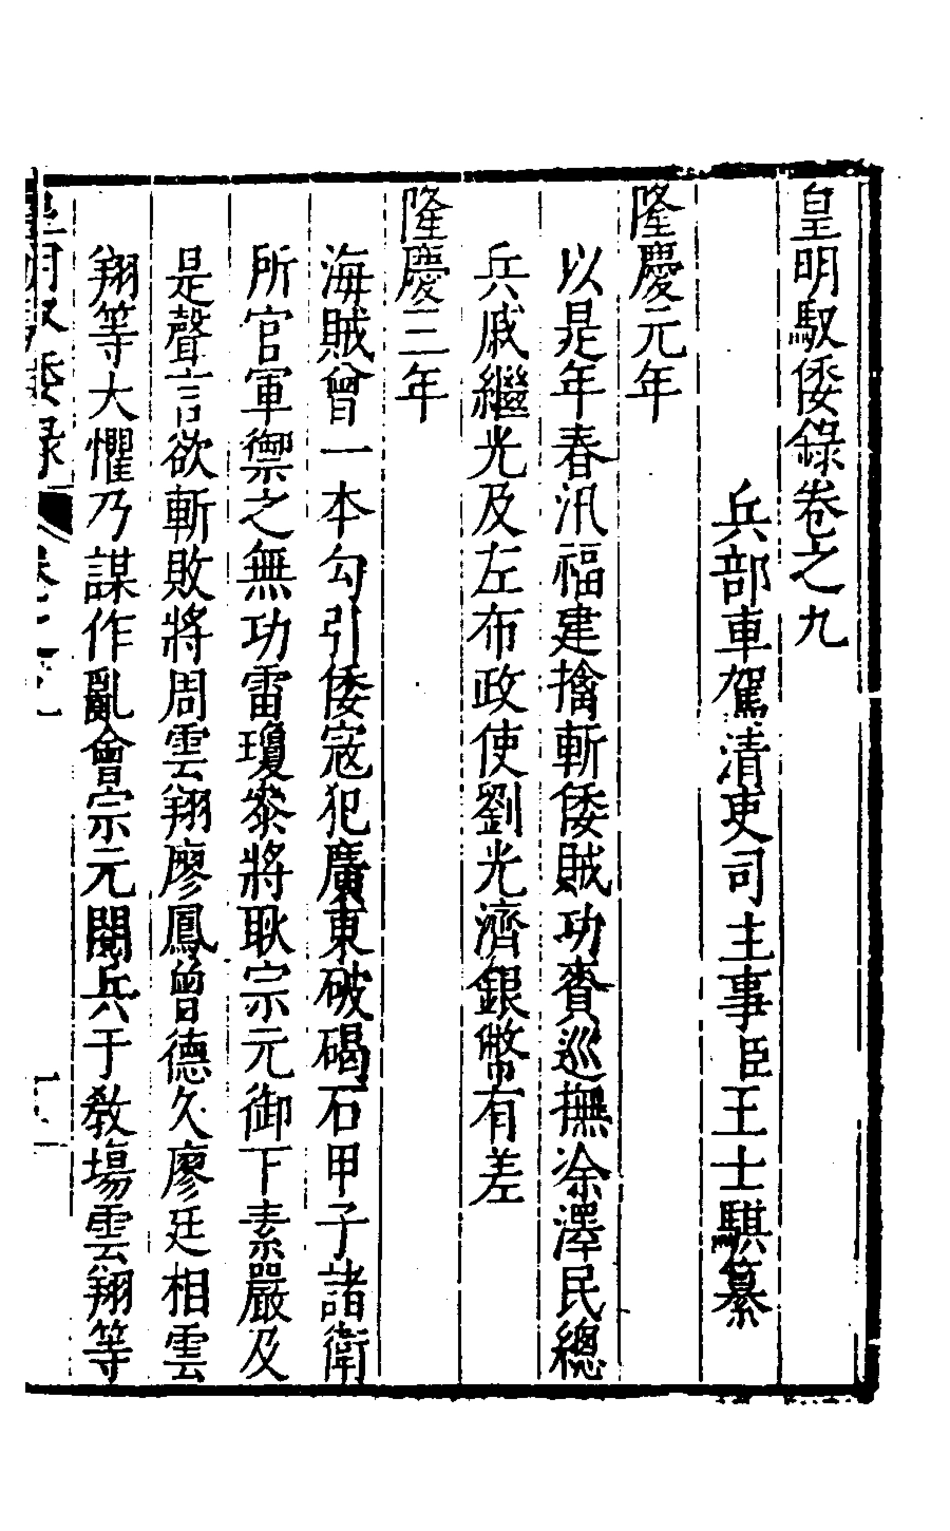 皇明馭倭錄卷之九
兵部車駕清吏司主事臣王士騏纂
隆慶元年
以是年春汛福建擒斬倭賊功賚巡撫凃澤民總
兵戚繼光及左布政使劉光濟銀幣有差
隆慶三年
海賊曾一本勾引倭寇犯廣東破碣石甲子諸衛
所官軍禦之無功雷瓊叅將耿宗元御下素嚴及
是聲言欲斬敗將周雲翔廖鳳曾德久廖廷相雲
翔等大懼乃謀作亂會宗元閱兵于教場雲翔等
皇明馭倭録 卷之九 一